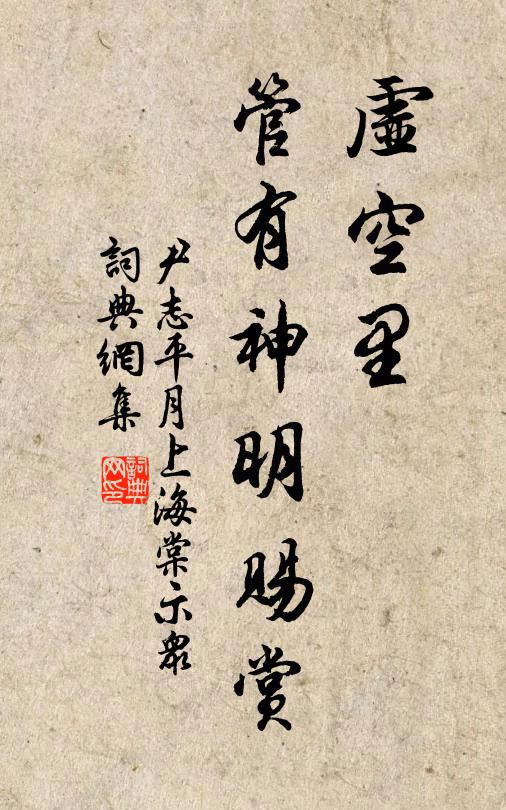 虛空里
管有神明賜賞
尹志平月上海棠示衆
詞典網集
詞典
网印